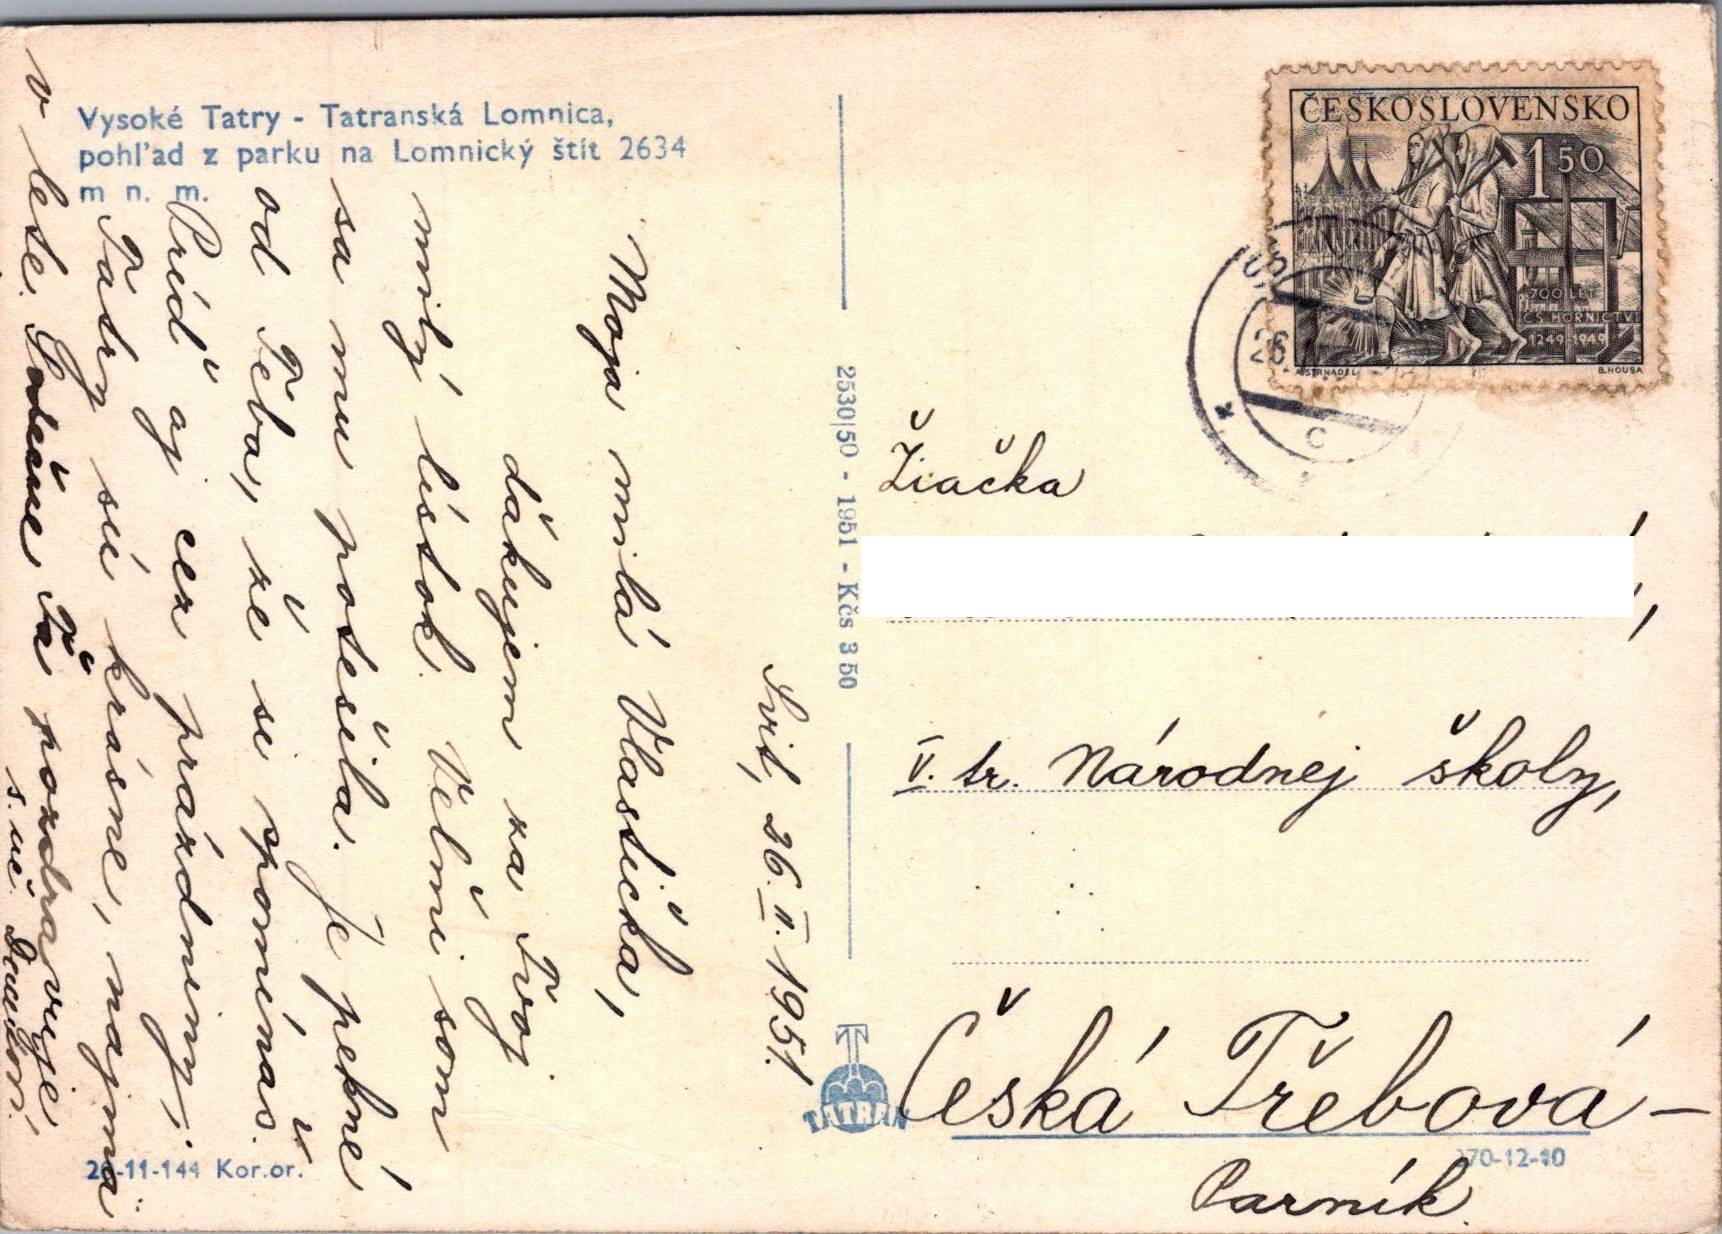 Vysoké Tatry - Tatranská Lomnica,
pohľad z parku na Lomnický štít 2634
m n. m.
Svit, 26. II. 1951.
Moja milá Vlastička,
ďakujem za Tvoj
milý lístok. Veľmi som
sa mu potešila. Je pekné
od Teba, že si spomínaš.
Príď aj cez prázdniny,
Tatry sú krásne, najmä
v lete. Srdečne Ťa pozdravuje
s. uč.
26-11-144 Kor.or.
2530|50 - 1951 - Kčs 3 50
TATRAN
ČESKOSLOVENSKO
1 50
700 LET
ČS. HORNICTVÍ
1249-1949
A. STRNADEL
B. HOUSA
26.
c
Žiačka
V. tr. Národnej školy,
Česká Třebová-
Parník.
270-12-10